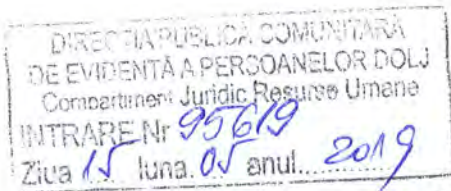 DIRECȚIA PUBLICĂ COMUNITARĂ
DE EVIDENȚĂ A PERSOANELOR DOLJ
Compartiment Juridic Resurse Umane
INTRARE Nr 95619
Ziua 15 luna. 05 anul... 2019